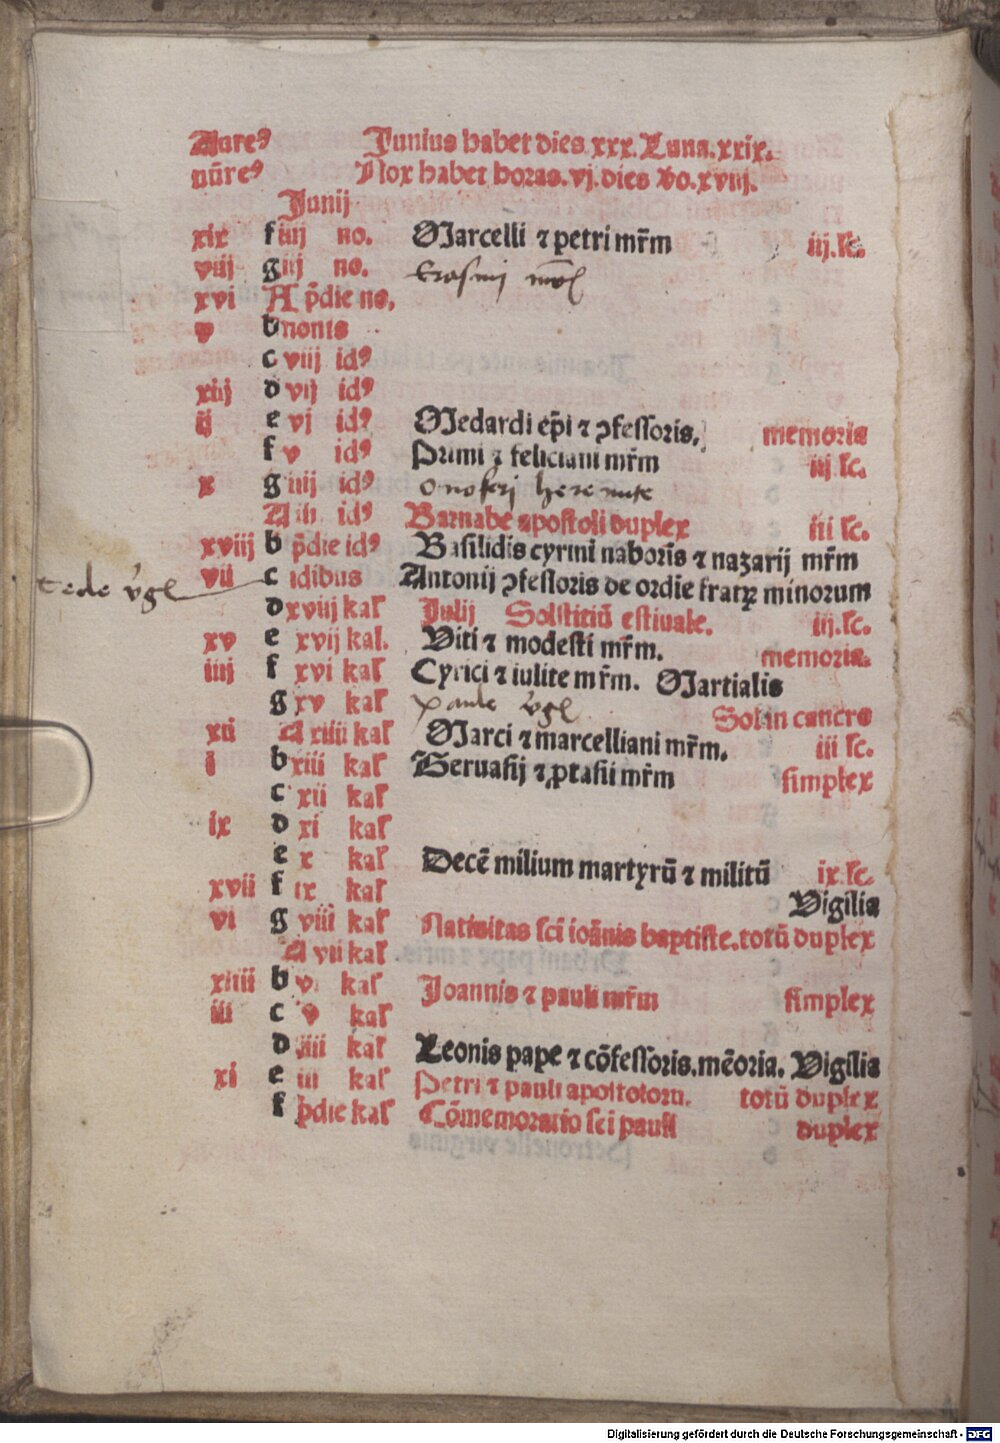 Aureꝰ Junius habet dies.xxx.Luna.xxix.
nūreꝰ Nox habet horas.vj.dies vo.xviij.
Junij
xix f iiij no. Marcelli ⁊ petri mr̄m iij.lc.
viij g iij no. Erasmij
xvi A p̄die no.
v b nonis
c viij idꝰ
xiij d vij idꝰ
ij e vj idꝰ Medardi ep̄i ⁊ ꝯfessoris. memoria
f v idꝰ Primi ⁊ feliciani mr̄m iij lc.
x g iiij idꝰ onofrij heremite
A iii idꝰ Barnabe apostoli duplex iii lc.
xviij b p̄die idꝰ Basilidis cyrini naboris ⁊ nazarij mr̄m
vii c idibus Antonij ꝯfessoris de ordīe fratꝝ minorum
d xviij kal Julij Solstitiū estiuale. iij.lc.
xv e xvij kal. Viti ⁊ modesti mr̄m. memoria.
iiij f xvi kal Cyrici ⁊ iulite mr̄m. Martialis
g xv kal paule v̄gꝭ Sol in cancro
xii A xiiii kal Marci ⁊ marcelliani mr̄m. iii lc.
i b xiii kal Geruasij ⁊ ꝓtasii mr̄m simplex
c xii kal
ix d xi kal
e x kal Decē milium martyrū ⁊ militū ix.lc.
xvii f ix kal Vigilia
vi g viii kal Natiuitas sci ioānis baptiste.totū duplex
A vii kal
xiiii b vi kal Joannis ⁊ pauli mr̄m simplex
iii c v kal
d iiii kal Leonis pape ⁊ cōfessoris.mēoria. Vigilia
xi e iii kal Petri ⁊ pauli apostoloru. totū duplex
f p̄die kal Cōmemoratio sci pauli duplex
Digitalisierung gefördert durch die Deutsche Forschungsgemeinschaft - DFG